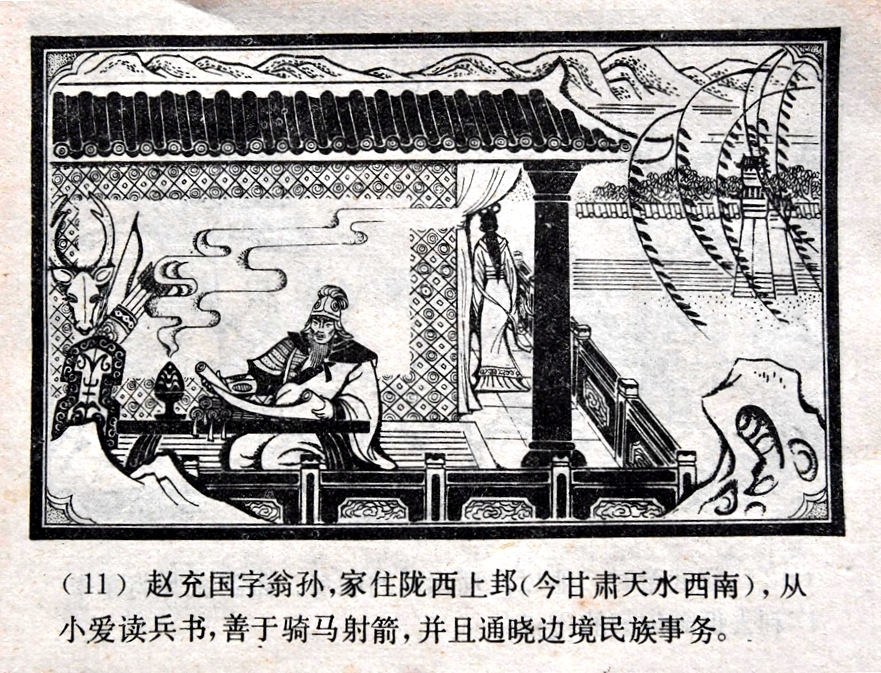 (11) 赵充国字翁孙,家住陇西上邽(今甘肃天水西南),从
小爱读兵书,善于骑马射箭,并且通晓边境民族事务。